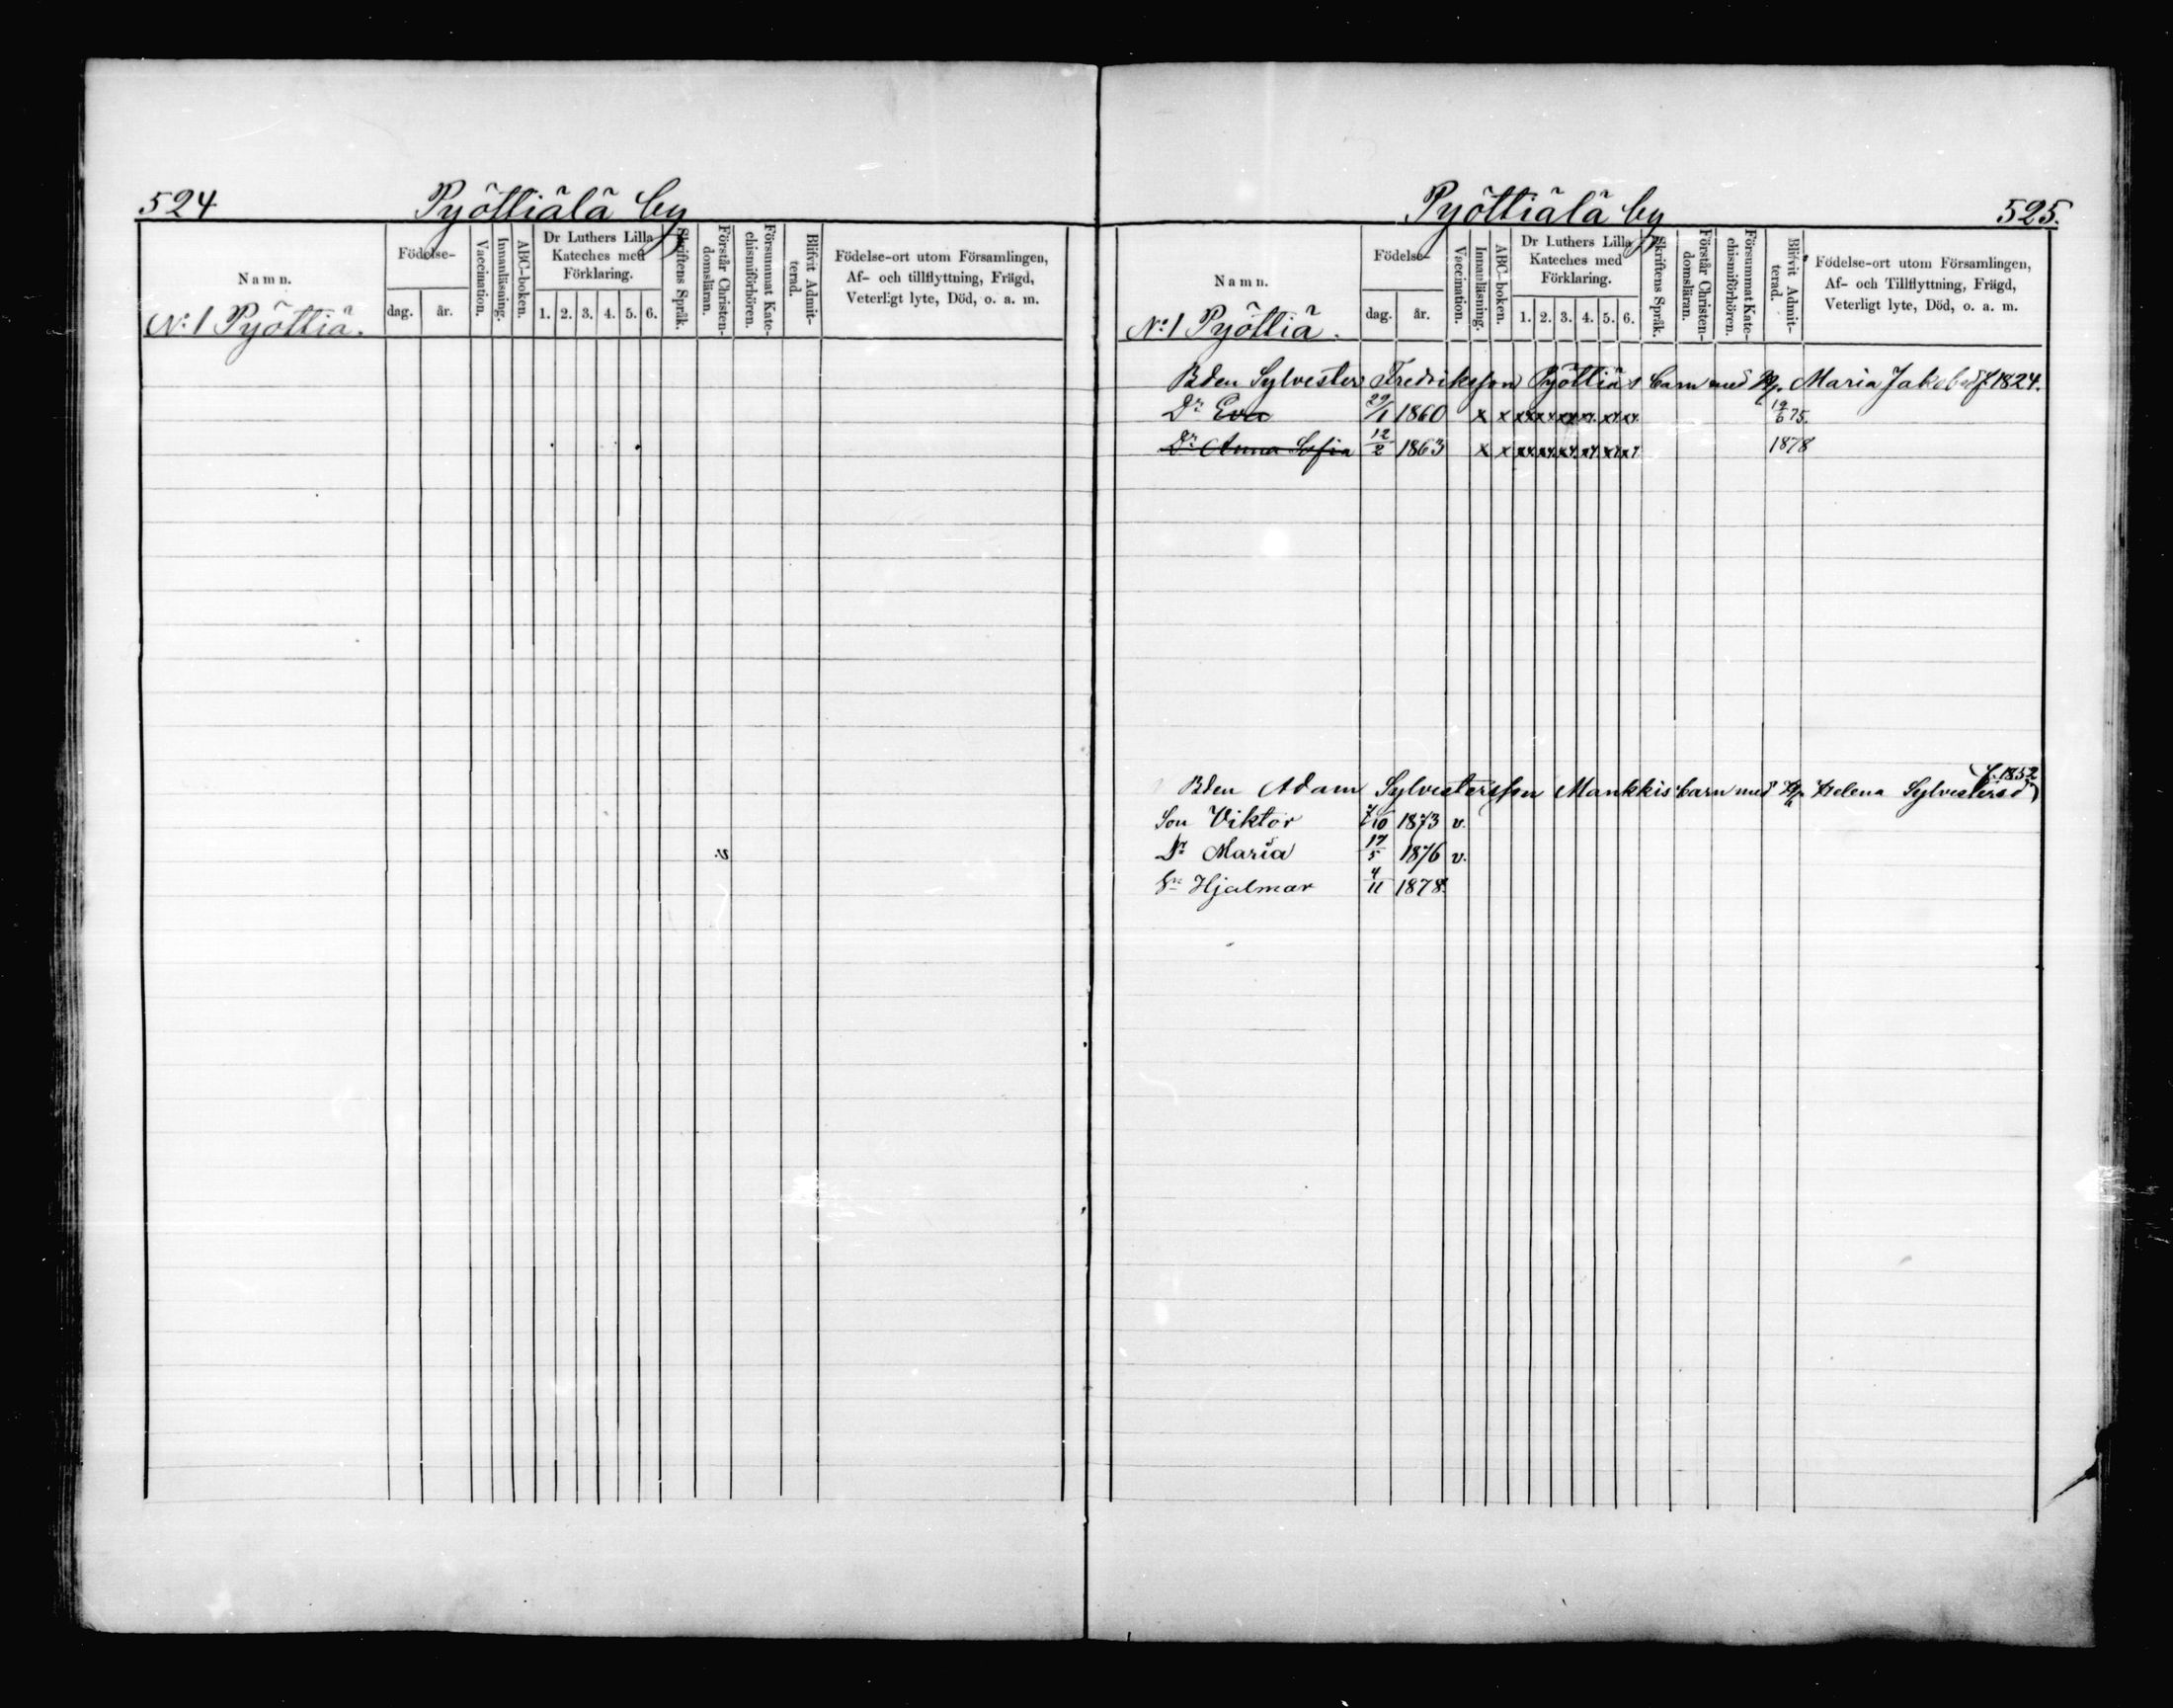 524 Pyöttiälä by
Namn. Födelse- dag. år. Vaccination. Innanläsning. ABC-boken. Dr Luthers Lilla Kateches med Förklaring. 1. 2. 3. 4. 5. 6. Skriftens Språk. Förstår Christendomsläran. Försummat Katechismiförhören. Blifvit Admitterad. Födelse-ort utom Församlingen, Af- och tillflyttning, Frägd, Veterligt lyte, Död, o. a. m.
No 1 Pyöttiä.
Pyöttiälä by 525.
Namn. Födelse- dag. år. Vaccination. Innanläsning. ABC-boken. Dr Luthers Lilla Kateches med Förklaring. 1. 2. 3. 4. 5. 6. Skriftens Språk. Förstår Christendomsläran. Försummat Katechismiförhören. Blifvit Admitterad. Födelse-ort utom Församlingen, Af- och Tillflyttning, Frägd, Veterligt lyte, Död, o. a. m.
No 1 Pyöttiä.
Bden Sylvester Fredriksson Pyöttiäs barn med H. Maria Jakobsd f. 1824.
Dr Eva 29/1 1860 x x 19/6 75.
Dr Anna Sofia 12/2 1863 x x 1878
f. 1852
Bden Adam Sylvestersson Mankkis barn med H. Helena Sylvestersd
Son Viktor 7/10 1873 v.
Dr Maria 17/5 1876 v.
Sn Hjalmar 4/11 1878.